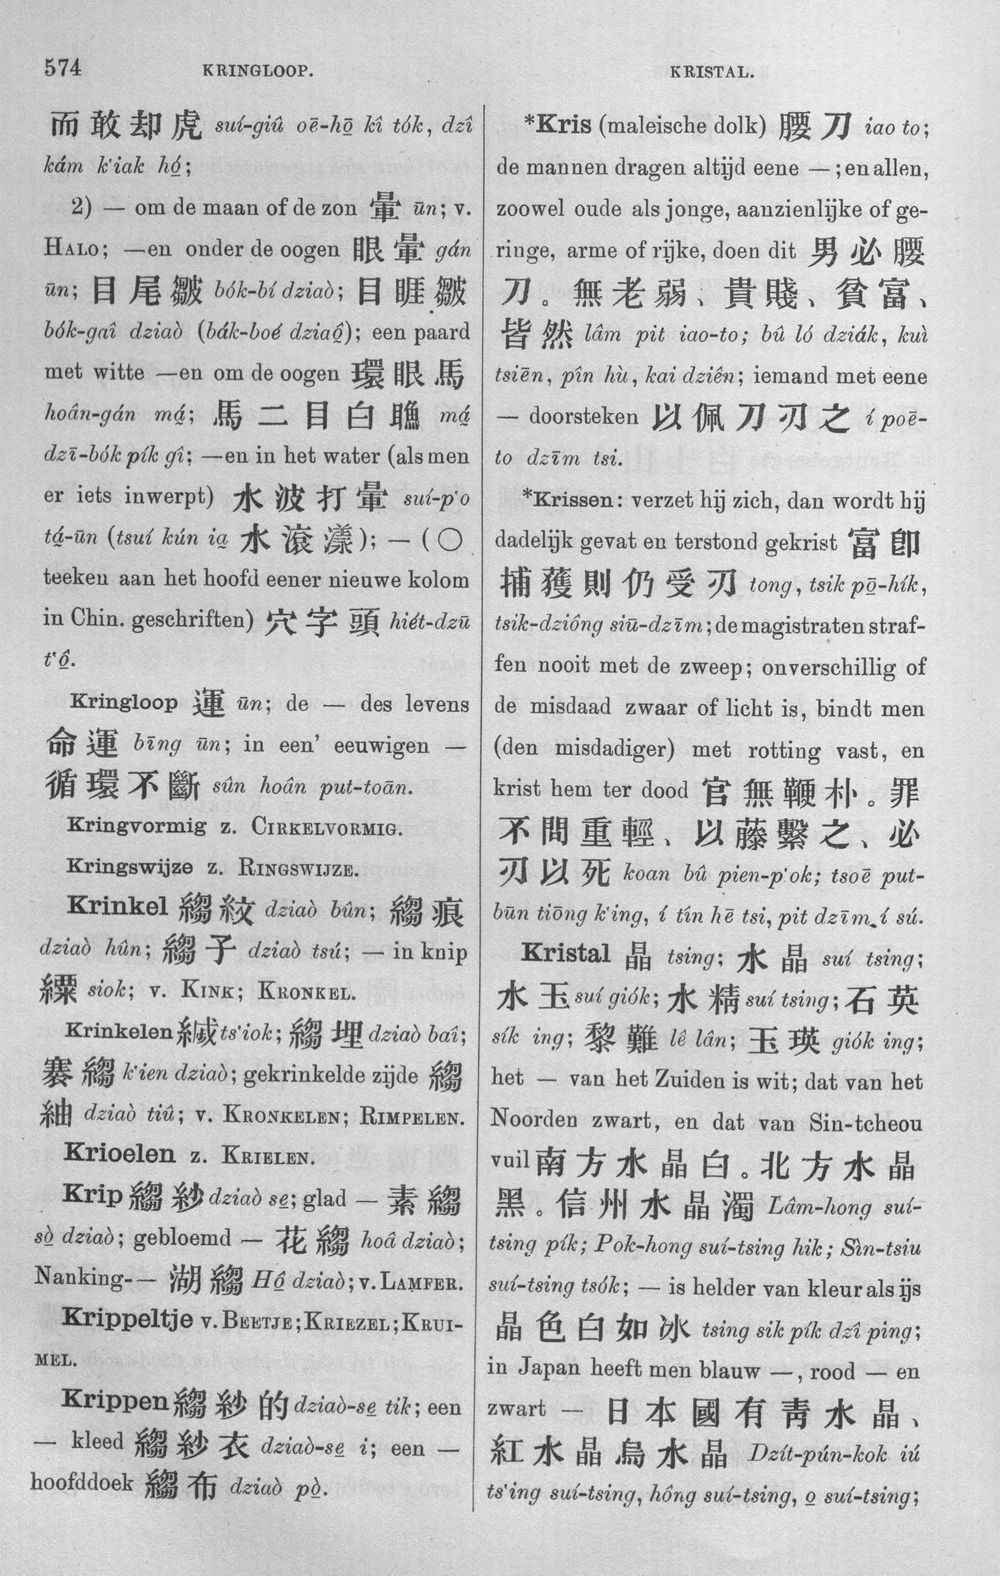 574
KRINGLOOP.
KRISTAL.
而敢却虎 suí-giû oē-hō̤ kî tók, dzî
kám k‘iak hó̤;
2) — om de maan of de zon 暈 ūn; v.
HALO; —en onder de oogen 眼暈 gán
ūn; 目尾皺 bók-bí dziaò; 目睚皺
bók-gaî dziaò (bák-boé dziaō̤); een paard
met witte —en om de oogen 環眼馬
hoân-gán má̤; 馬二目白瞧 má̤
dzī-bók pík gî; —en in het water (als men
er iets inwerpt) 水波打暈 suí-p‘o
tá̤-ūn (tsuí kún ia̤ 水滾漾); — (○
teeken aan het hoofd eener nieuwe kolom
in Chin. geschriften) 穴字頭 hiét-dzū
t‘ô̤.
Kringloop 運 ūn; de — des levens
命運 bīng ūn; in een’ eeuwigen —
循環不斷 sûn hoân put-toān.
Kringvormig z. CIRKELVORMIG.
Kringswijze z. RINGSWIJZE.
Krinkel 縐紋 dziaò bûn; 縐痕
dziaò hûn; 縐子 dziaò tsú; — in knip
siok; v. KINK; KRONKEL.
Krinkelen 縬 ts‘iok; 縐埋 dziaò baî;
褰縐 k‘ien dziaò; gekrinkelde zijde 縐
紬 dziaò tiû; v. KRONKELEN; RIMPELEN.
Krioelen z. KRIELEN.
Krip 縐紗 dziaò se̤; glad — 素縐
sò̤ dziaò; gebloemd — 花縐 hoâ dziaò;
Nanking-— 湖縐 Hô̤ dziaò; v. LAMFER.
Krippeltje v. BEETJE; KRIEZEL; KRUI-
MEL.
Krippen 縐紗的 dziaò-se̤ tik; een
— kleed 縐紗衣 dziaò-se̤ i; een —
hoofddoek 縐布 dziaò pò̤.
*Kris (maleische dolk) 腰刀 iao to;
de mannen dragen altijd eene — ; en allen,
zoowel oude als jonge, aanzienlijke of ge-
ringe, arme of rijke, doen dit 男必腰
刀。無老弱、貴賤、貧富、
皆然 lâm pit iao-to; bû ló dziák, kuì
tsiēn, pîn hù, kai dziên; iemand met eene
— doorsteken 以佩刀刃之 í poē-
to dzīm tsi.
*Krissen: verzet hij zich, dan wordt hij
dadelijk gevat en terstond gekrist 當卽
捕獲則仍受刃 tong, tsik pō̤-hík,
tsik-dziông siū-dzīm; de magistraten straf-
fen nooit met de zweep; onverschillig of
de misdaad zwaar of licht is, bindt men
(den misdadiger) met rotting vast, en
krist hem ter dood 官無鞭朴。罪
不問重輕、以藤繫之、必
刃以死 koan bû pien-p‘ok; tsoē put-
būn tiōng k‘ing, í tîn hē tsi, pit dzīm í sú.
Kristal 晶 tsing; 水晶 suí tsing;
水玉 suí giók; 水精 suí tsing; 石英
sík ing; 黎難 lê lân; 玉瑛 giók ing;
het — van het Zuiden is wit; dat van het
Noorden zwart, en dat van Sin-tcheou
vuil 南方水晶白。北方水晶
黑。信州水晶濁 Lâm-hong suí-
tsing pík; Pok-hong suí-tsing hik; Sìn-tsiu
suí-tsing tsók; — is helder van kleur als ijs
晶色白如冰 tsing sik pík dzî ping;
in Japan heeft men blauw —, rood — en
zwart — 日本國有青水晶、
紅水晶烏水晶 Dzít-pún-kok iú
ts‘ing suí-tsing, hông suí-tsing, o̤ suí-tsing;